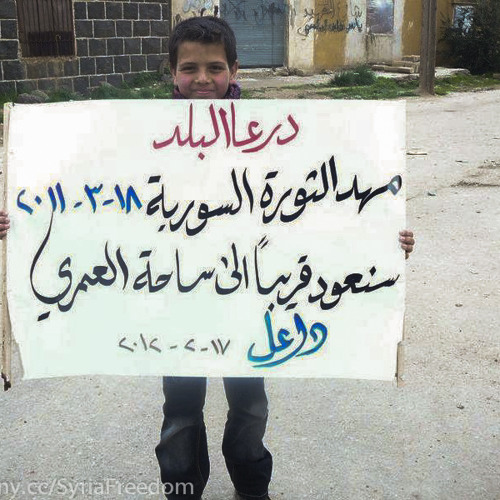 درعا البلد
مهد الثورة السورية ١٨-٣-٢٠١١
سنعود قريباً الى ساحة العمري
داعل
١٧-٢-٢٠١٢
ny.cc/SyriaFreedom